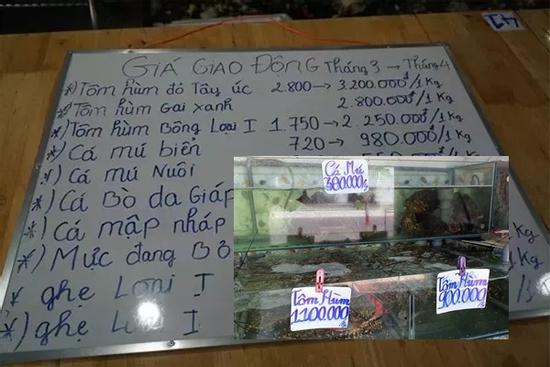 GIÁ GIAO ĐỘNG Tháng 3 → Tháng 4
*) Tôm hùm đỏ Tây úc 2.800 → 3.200.000đ/1 Kg
*) Tôm hùm Gai xanh 2.800.000đ/1 Kg
*) Tôm hùm Bông Loại I 1.750 → 2 250.000đ/1 Kg
*) Cá mú biển 720 → 980.000/1 Kg
*) Cá mú Nuôi
*) Cá Bò da Giáp
*) Cá mập nháp
*) Mực đang Bỏ
* ghẹ Loại I
*) ghẹ I
Kg
Kg
Cá Mú
380.000
Tôm Hùm
1100.000
Tôm Hùm
900.000